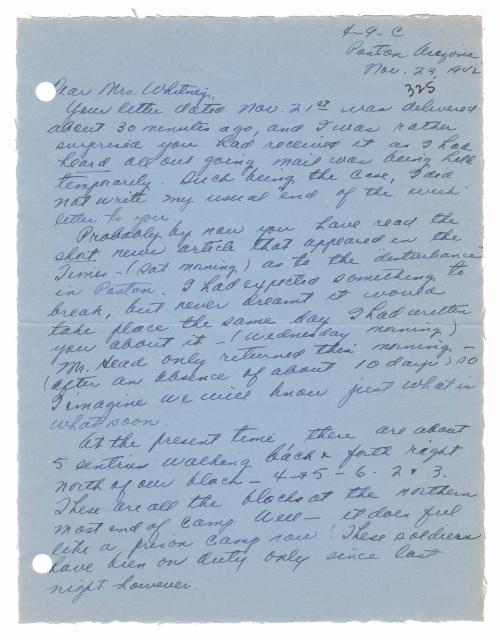 4-9-C
Poston Arizona
Nov. 23, 1942
325
Dear Mrs. Whitney,
Your letter dated Nov. 21st was delivered
about 30 minutes ago, and I was rather
surprised you had received it as I had
heard all out going mail was being held
temporarily. Such being the case, I did
not write my usual end of the week
letter to you.
Probably by now you have read the
short news article that appeared in the
Times - (Sat. morning) as to the "disturbance"
in Poston. I had expected something to
break, but never dreamt it would
take place the same day I had written
you about it - (Wednesday morning)
Mr. Head only returned this morning -
(after an absence of about 10 days) so
I imagine we will know just what is
what soon.
At the present time, there are about
5 sentries walking back & forth right
north of our block - 4 & 5 - 6 - 2 & 3.
These are all the blocks at the northern
most end of camp. Well - it does feel
like a prison camp now! These soldiers
have been on duty only since last
night however.